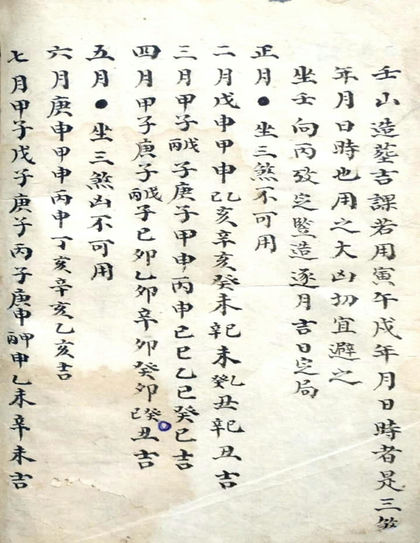 壬山造塟吉課若用寅午戌年月日時者是三煞
年月日時也用之大凶切宜避之
坐壬向丙致定豎造逐月吉日定局
正月●坐三煞不可用
二月戊申甲申己亥辛亥癸未辛未癸丑辛丑吉
三月甲子丙子庚子甲申丙申己巳乙巳癸巳吉
四月甲子庚子丙子己卯乙卯辛卯癸卯癸丑吉
五月●坐三煞凶不可用
六月庚申甲申丙申丁亥辛亥乙亥吉
七月甲子戊子庚子丙子庚申丙申乙未辛未吉